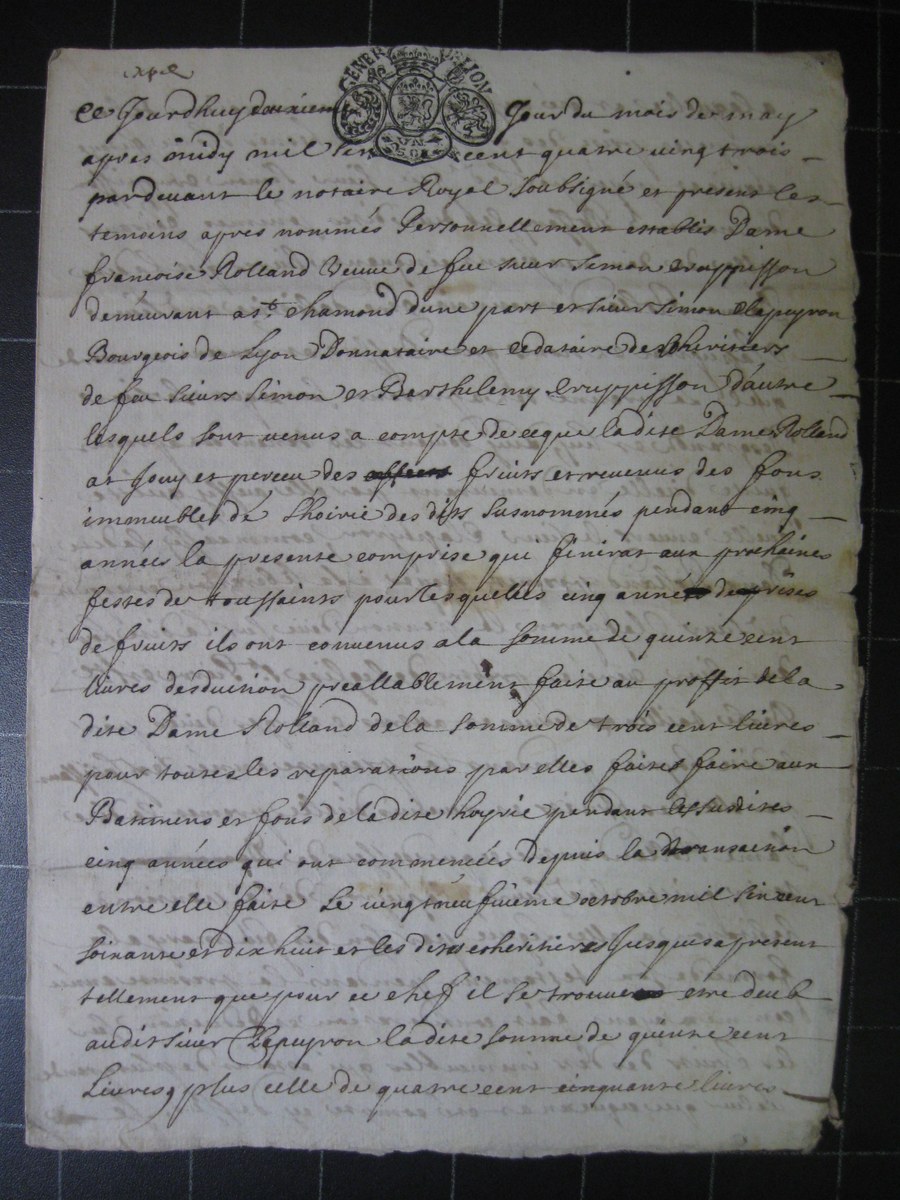 expé
ce Jourdhuy douziem Jour du mois de may
GENER LYON
UN SOL
apres midy mil six cent quatre vingt trois
pardevant le notaire Royal soubsigné et present les
temoins apres nommés Personnellement establis Dame
francoise Rolland veuve de feu sieur Simon Cruppisson
demeurant a st chamond dune part et sieur Simon Clapeyron
Bourgeois de Lyon Donnataire et cedataire des heritiers
de feu sieurs Simon et Barthelemy Cruppisson d'autre
lesquels sont venus a compte de ceque ladite Dame Rolland
at Jouy et perceu des fruits et revenus des fons
immeubles de l'hoirie des dits susnommés pendant cinq
années la presente comprise que finirat aux prochaines
festes de toussaints pour lesquelles cinq années de prises
de fruits ils ont convenus a la somme de quinze cent
livres desduction preallablement faite au proffit de la
dite Dame Rolland de la somme de trois cent livres
pour toutes les reparations par elles faites faire aux
Batimens et fons de la dite hoyrie pendant les susdites
cinq années qui ont commencées depuis la transaction
entre elle faite le vingt neufvieme octobre mil six cent
soixante et dix huit et les dits coheritiers Jusques a present
tellement que pour ce chef il se trouve etre deub
audit sieur Clapeyron ladite somme de quinze cent
Livres, plus celle de quatre cent cinquante livres